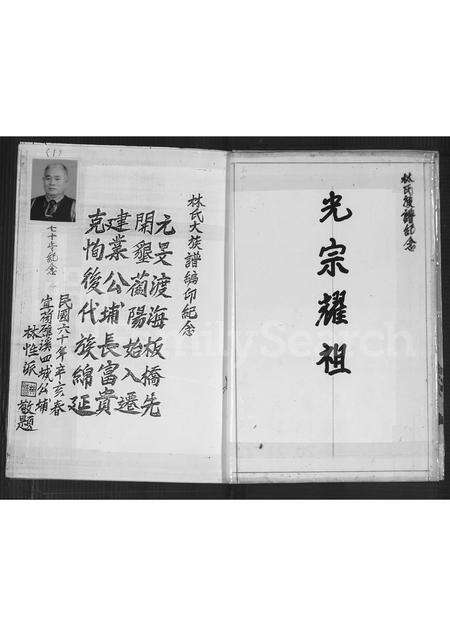 林氏復譜紀念
光宗耀祖
林氏大族譜編印紀念
元旻渡海板橋先
開墾蘭陽始入遷
建業公埔長富貴
克恂後代族綿延
民國六十年辛亥春
宜蘭礁溪四城公埔
林性派 敬題
(1)
七十才紀念
FamilySearch